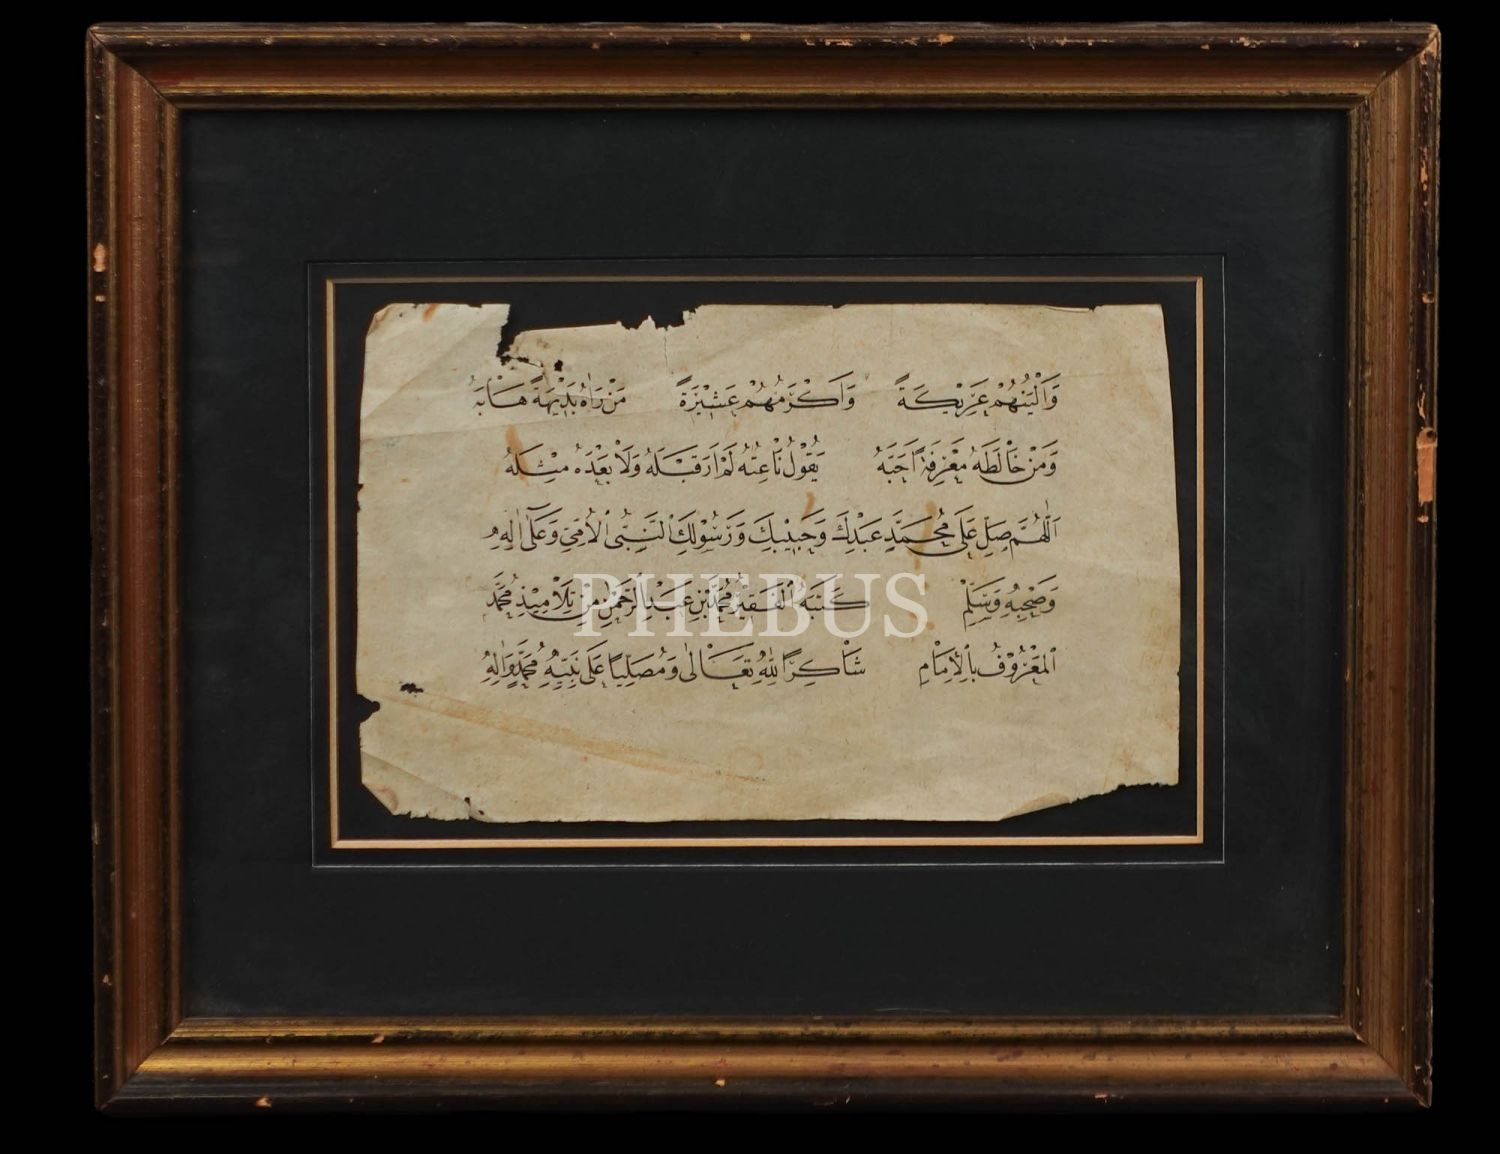 وَاَلْيَنُهُمْ عَرِيْكَةً وَاَكْرَمُهُمْ عَشِيْرَةً مَنْ رَاٰهُ بَدِيْهَةً هَابَهُ
وَمَنْ خَالَطَهُ مَعْرِفَةً اَحَبَّهُ يَقُوْلُ نَاعِتُهُ لَمْ اَرَ قَبْلَهُ وَلَا بَعْدَهُ مِثْلَهُ
اَللّٰهُمَّ صَلِّ عَلَى مُحَمَّدٍ عَبْدِكَ وَحَبِيْبِكَ وَرَسُوْلِكَ النَّبِيِّ الْاُمِّيِّ وَعَلَى اٰلِهِ
وَصَحْبِهِ وَسَلِّمْ كَتَبَهُ الْفَقِيْرُ مُحَمَّدُ بْنُ عَبْدِ الرَّحْمٰنِ مِنْ تَلَامِيْذِ مُحَمَّد
الْمَعْرُوْفُ بِالْاِمَامِ شَاكِرًا لِلّٰهِ تَعَالٰى وَمُصَلِّيًا عَلَى نَبِيِّهِ مُحَمَّدٍ وَاٰلِهِ
PHEBUS